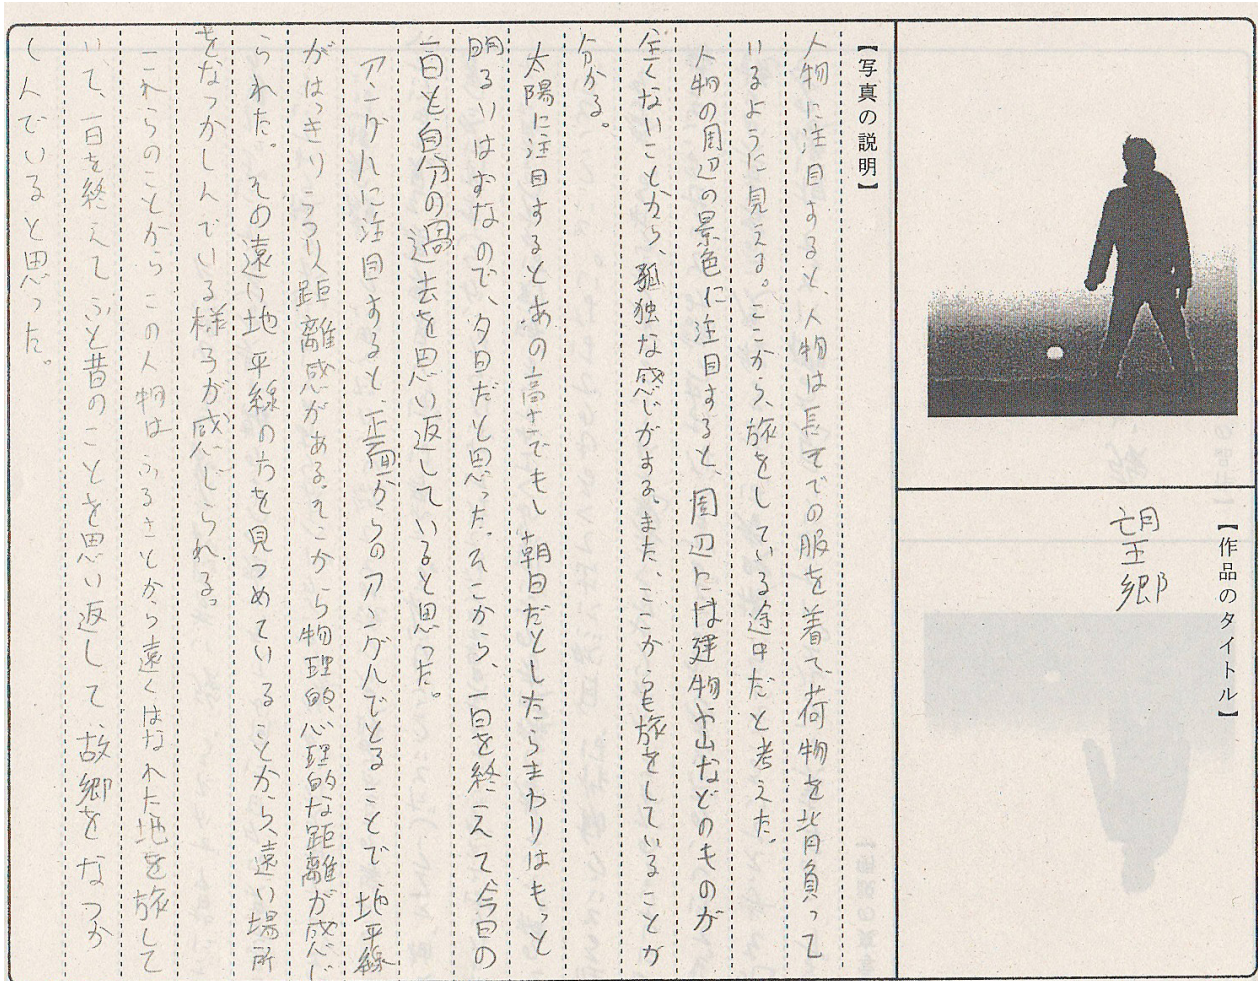 【作品のタイトル】
望郷
【写真の説明】
人物に注目すると、人物は長そでの服を着て、荷物を背負って
いるように見える。ここから、旅をしている途中だと考えた。
人物の周辺の景色に注目すると、周辺には建物や山などのものが
全くないことから、孤独な感じがする。また、ここからも旅をしていることが
分かる。
太陽に注目するとあの高さでもし朝日だとしたらまわりはもっと
明るいはずなので、夕日だと思った。そこから、一日を終えて今日の
一日と自分の過去を思い返していると思った。
アングルに注目すると、正面からのアングルでとることで地平線
がはっきりうつり、距離感がある。そこから物理的、心理的な距離が感じ
られた。その遠い地平線の方を見つめていることから、遠い場所
をなつかしんでいる様子が感じられる。
これらのことからこの人物はふるさとから遠くはなれた地を旅して
いて、一日を終えてふと昔のことを思い返して、故郷をなつか
しんでいると思った。